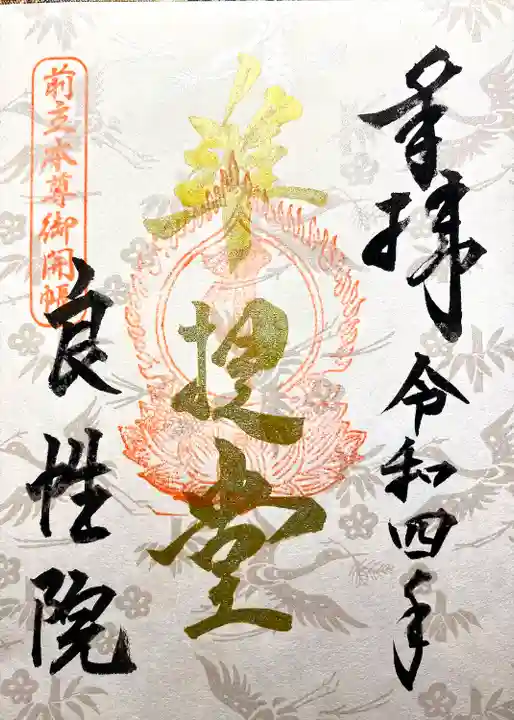 奉拝 令和四年
菩提堂
前立本尊御開帳
良性院